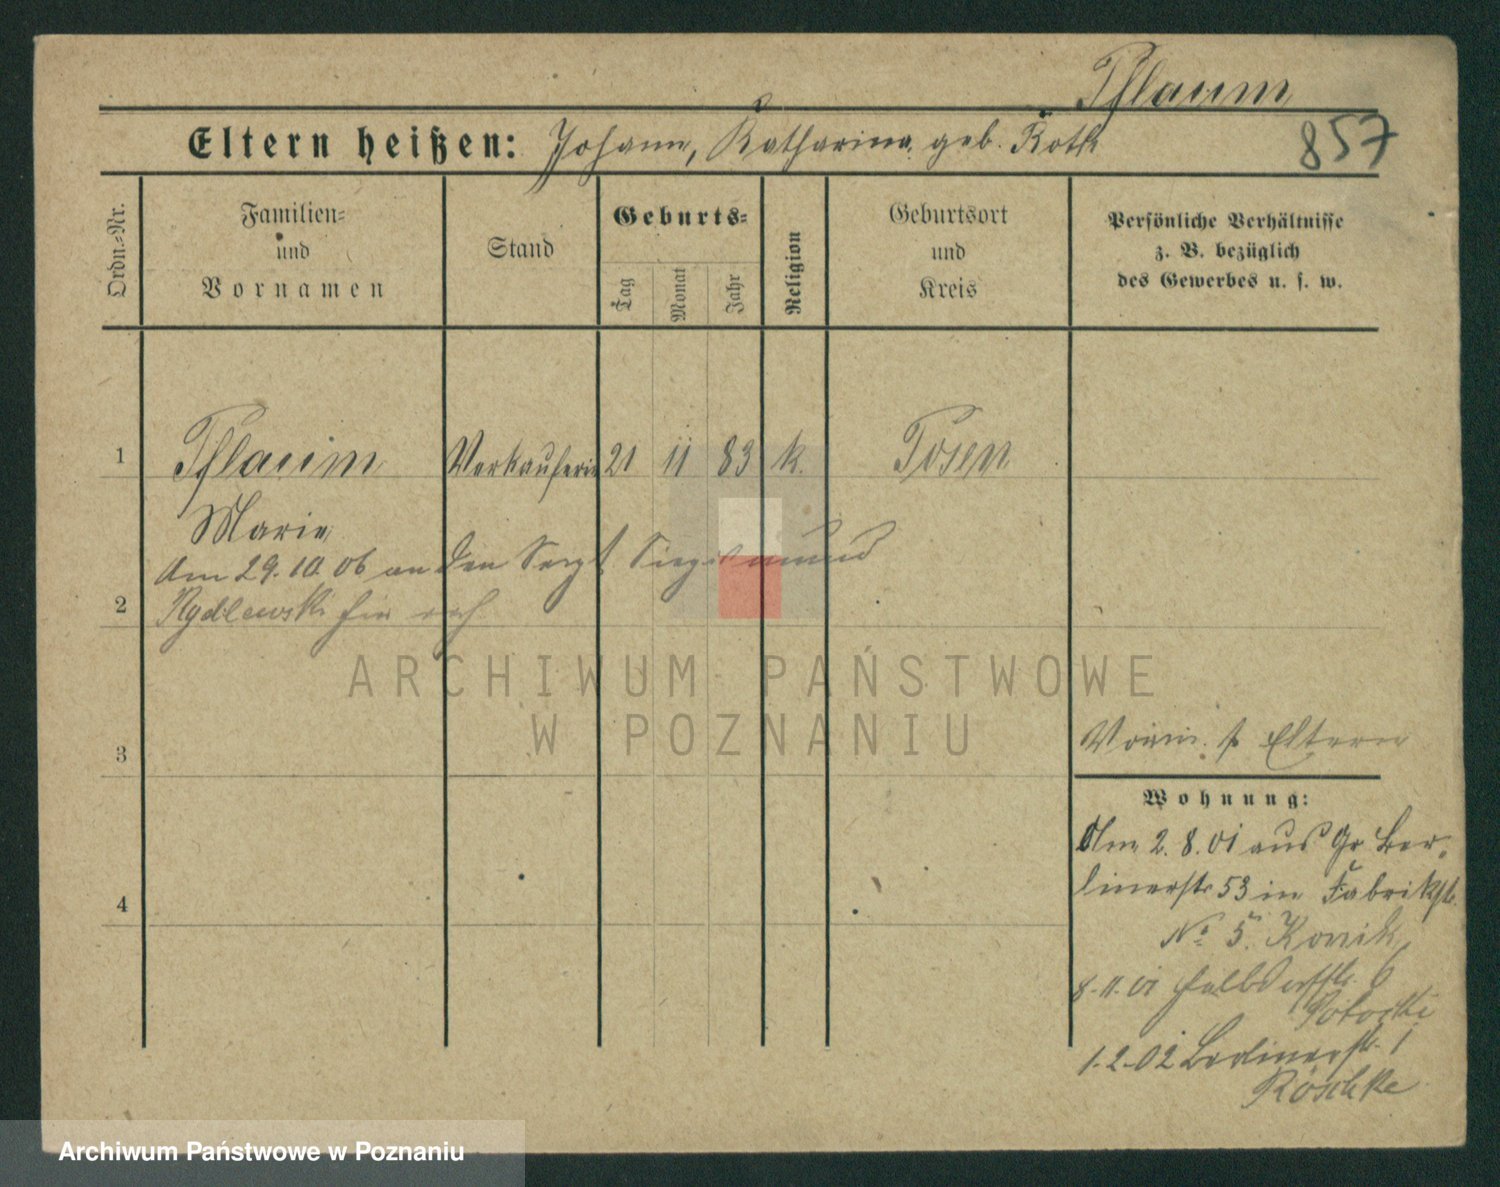 Pflaum
857
Eltern heißen: Johann, Katharina geb. Roth
Ordn.=Nr.
Familien=
und
Vornamen
Stand
Geburts=
Tag
Monat
Jahr
Religion
Geburtsort
und
Kreis
Persönliche Verhältnisse
z. B. bezüglich
des Gewerbes u. s. w.
1
Pflaum Verkäuferin 21 11 83 k. Posen
Marie
Am 29.10.06 an den Sergt Siegismund
2
Rydlewski hier
ARCHIWUM PAŃSTWOWE
W POZNANIU
3
Eltern
Wohnung:
Am 2.8.01 aus Gr Ber-
linerstr 53 in Fabrikstr.
4
No 5. Konik
8.11.01 6
Potocki
1.2.02 Berlinerstr. 1
Röschke
Archiwum Państwowe w Poznaniu